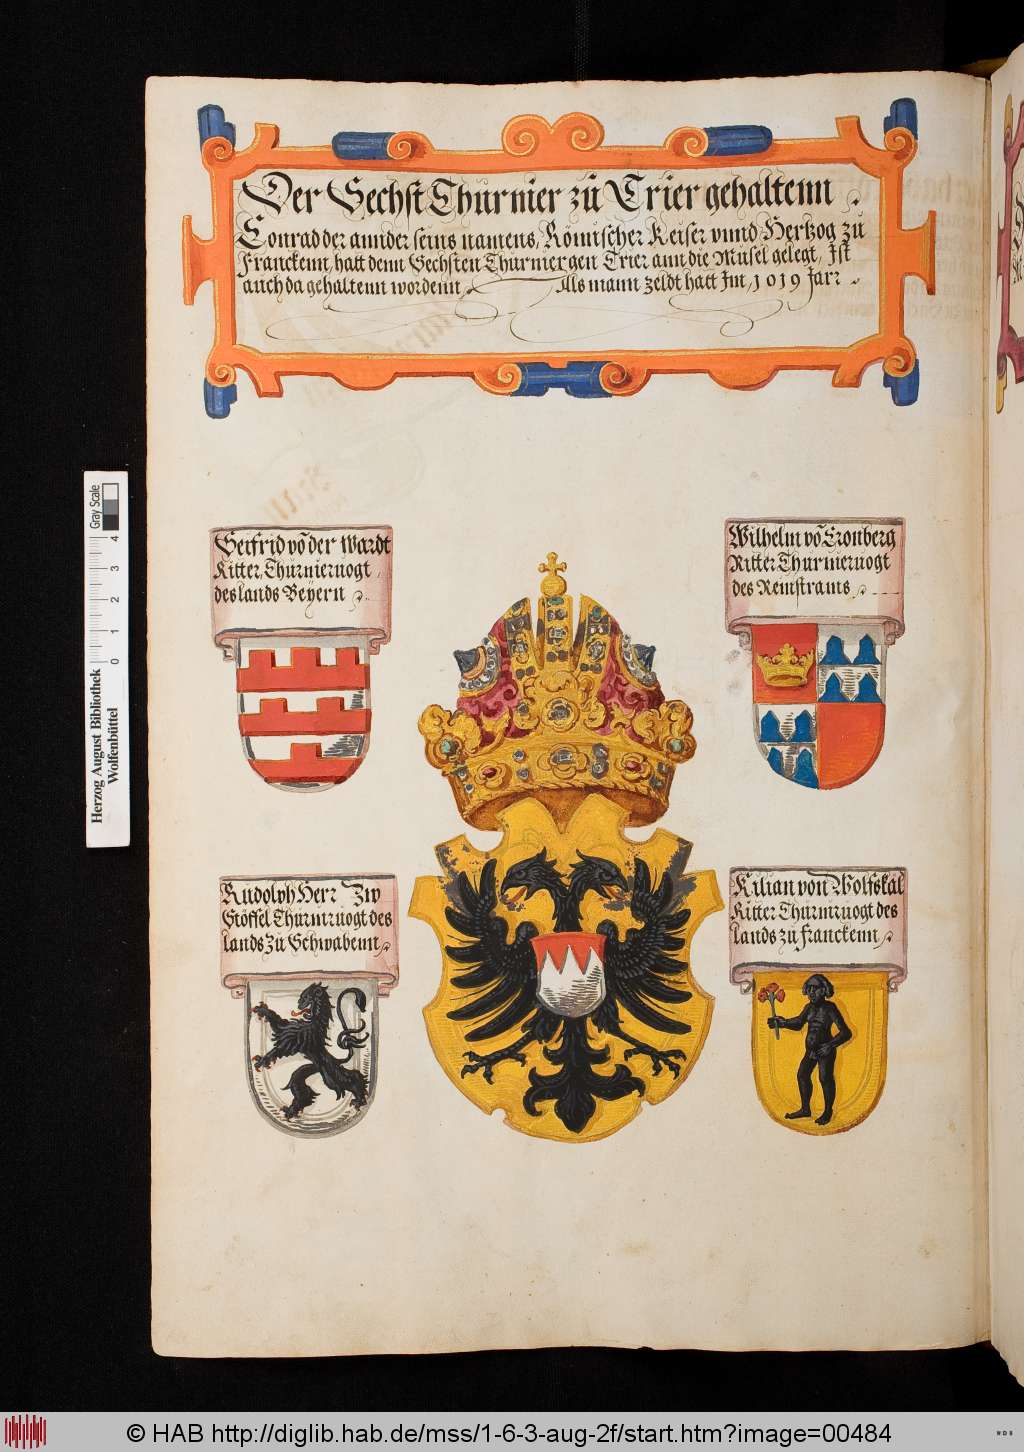 Der Sechst Thurnier zu Trier gehaltenn .
Conrad der annder seins namens, Römischer Keiser vnnd Hertzog zu
Franckenn, hatt denn Sechsten Thurnier gen Trier ann die Musel gelegt, Ist
auch da gehaltenn wordenn . Als mann zeldt hatt Im, 1019 Jarr .
Seifrid vō der Wardt
Ritter, Thurnieruogt,
des lands Beyern
Wilhelm vō Cronberg
Ritter Thurnieruogt
des Reinstrams
Rudolph Herr Zw
Stöffel Thurnruogt des
lands Zu Schwabenn
Kilian von Wolfskal
Ritter Thurnruogt des
lands zu Franckenn
Herzog August Bibliothek
Wolfenbüttel
0 1 2 3 4
Gray Scale
© HAB http://diglib.hab.de/mss/1-6-3-aug-2f/start.htm?image=00484